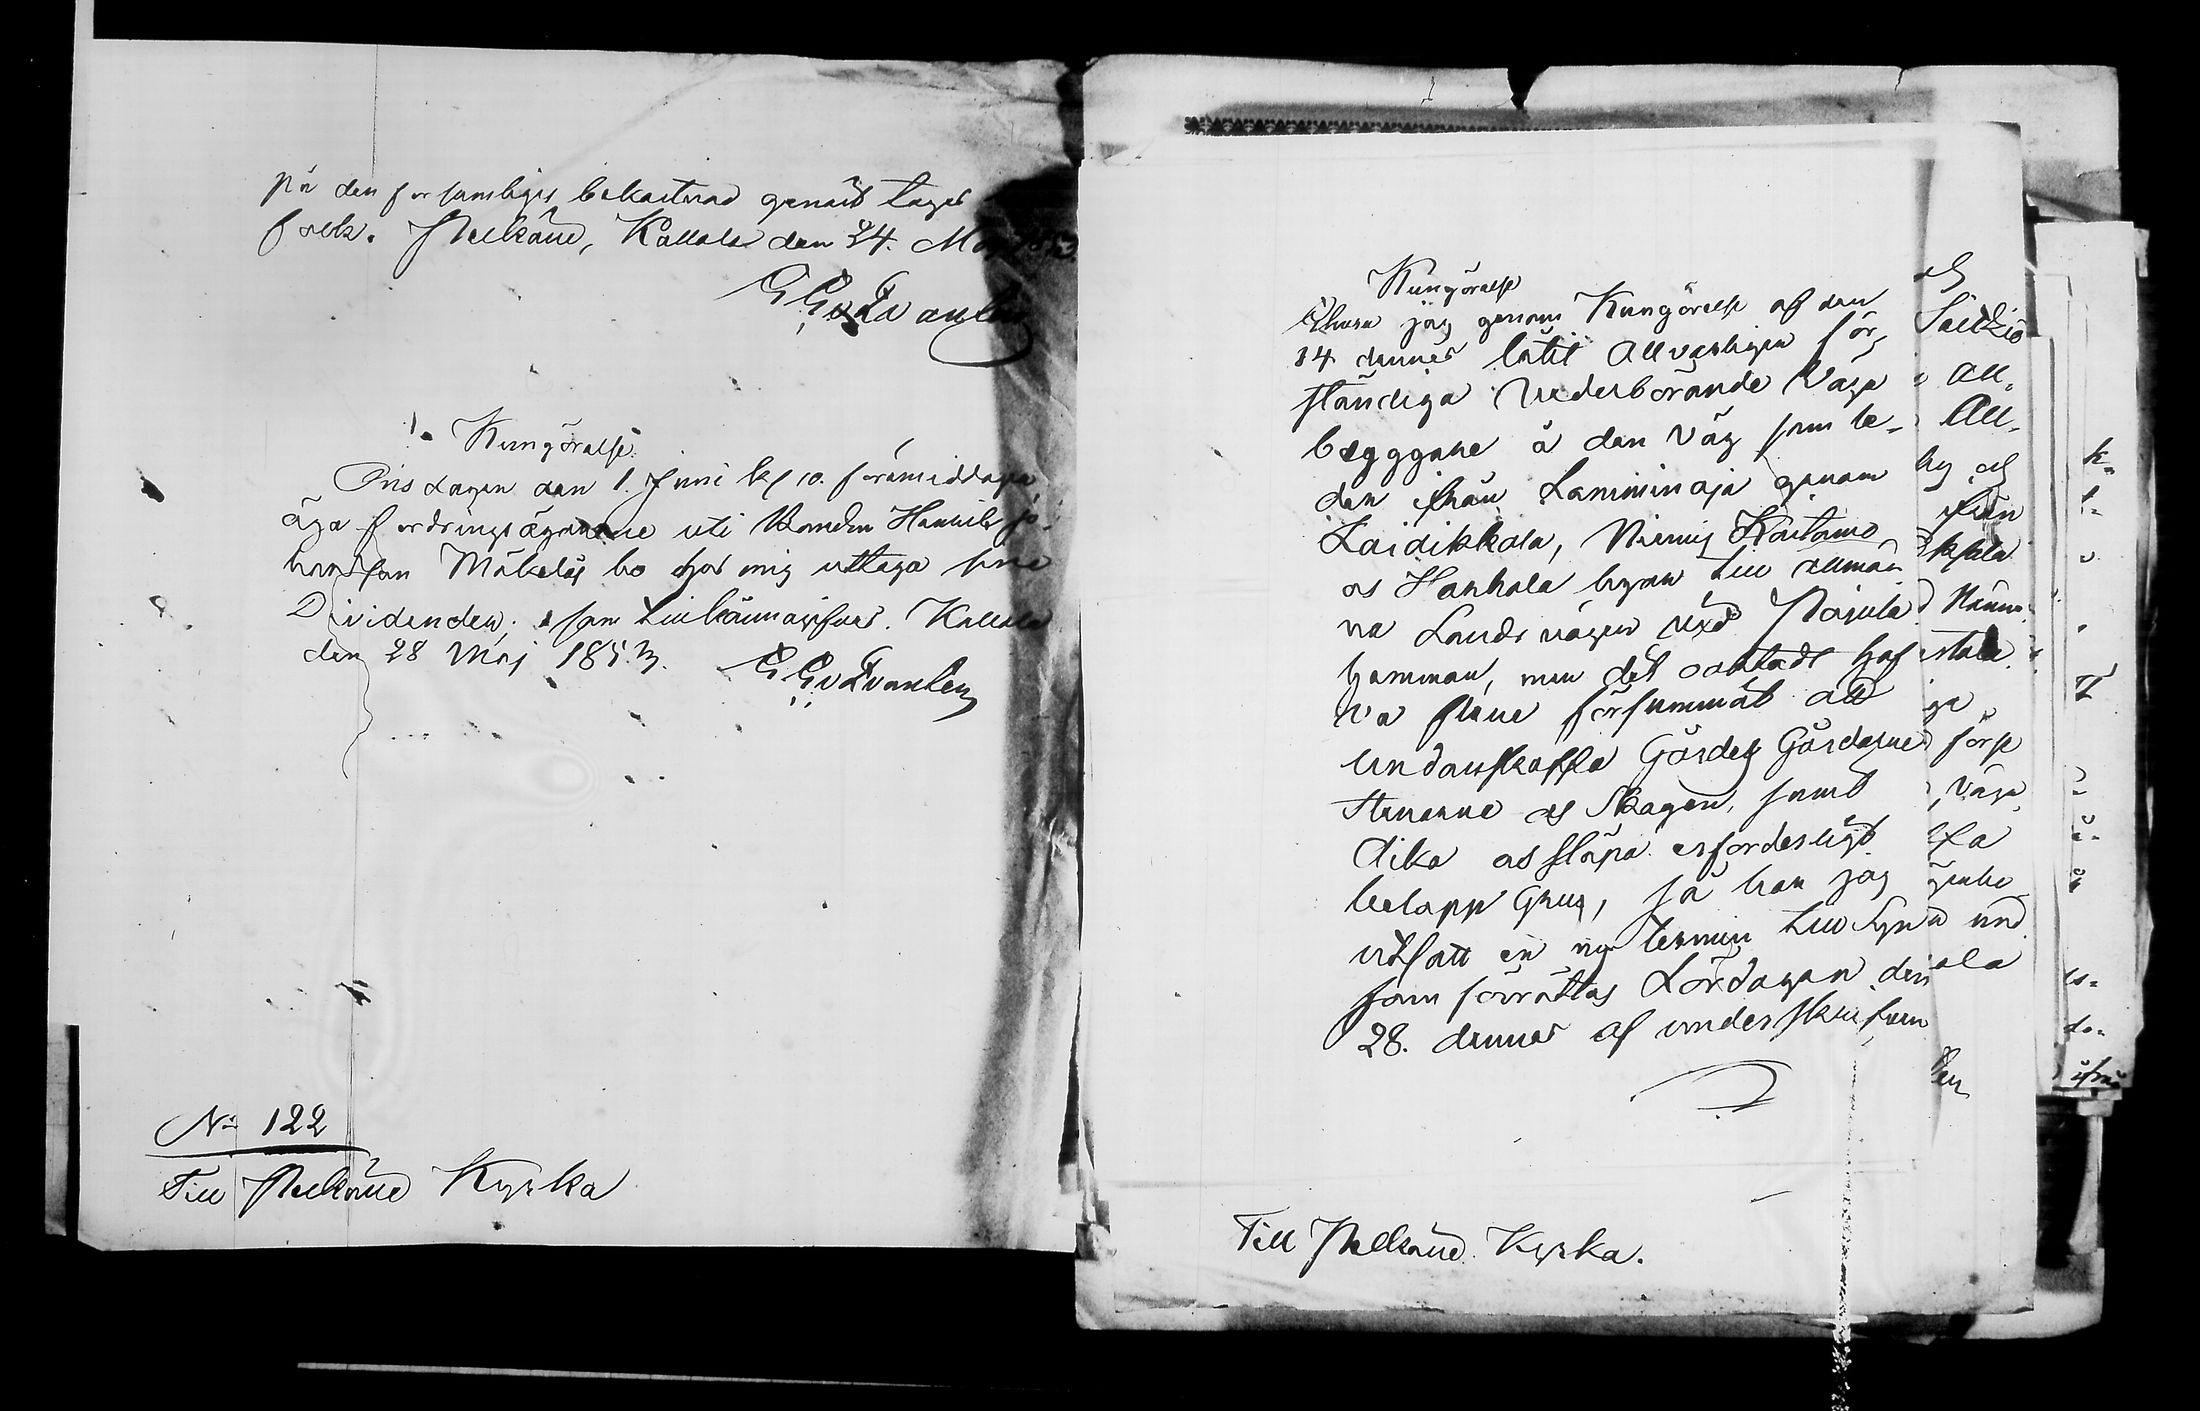 på den forsumliges bekostnad genast tages
folk. Pelkäne, Kallala den 24. Maj 1853.
G G v Qvanten
Kungörelse.
Onsdagen den 1. Juni kl 10. föremiddagen
äga fordringsägarene uti Bonden Henrik Jo-
hansson Mäkeläs bo hos mig uttaga sine
Dividender, som tillkännagifves. Kallala
den 28 Maj 1853.
G G v Qvanten
No 122
Till Pelkäne Kyrka
Kungörelse
Ehuru jag genom Kungörelse af den
14 dennes låtit Allvarligen för-
ständiga Vederbörande Väga
byggare å den väg som le-
der ifrån Lamminoja genom
Laidikkala, Niemis Kaitamo
os Hankala byar till allmän
na Landsvägen vid Pajula
hemman, men det oaktadt haf
va flere försummat att
undanskaffa Gärdes Gårdarne
Stenarne os Skogen, samt
dika os släpa erforderligt
belopp Grus, så har jag
utsatt en ny termin till syn
som förrättas Lördagen den
28. dennes af underskrefven
Till Pelkäne Kyrka.